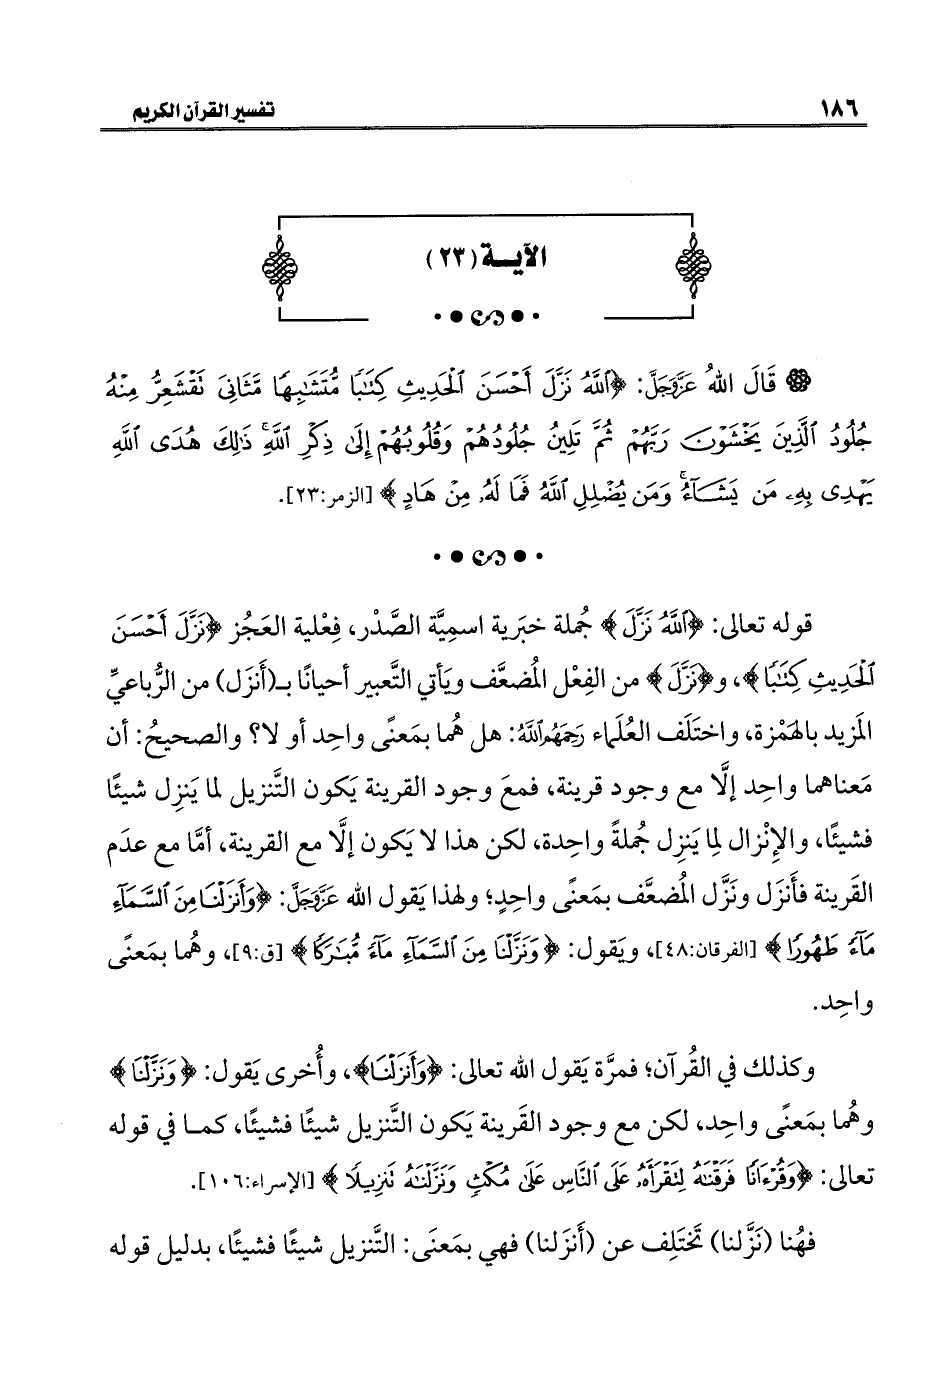 ١٨٦
تفسير القرآن الكريم
الآيـــة (٢٣)
قَالَ اللهُ عَزَّوَجَلَّ: ﴿ٱللَّهُ نَزَّلَ أَحْسَنَ ٱلْحَدِيثِ كِتَٰبًا مُّتَشَٰبِهًا مَّثَانِىَ تَقْشَعِرُّ مِنْهُ
جُلُودُ ٱلَّذِينَ يَخْشَوْنَ رَبَّهُمْ ثُمَّ تَلِينُ جُلُودُهُمْ وَقُلُوبُهُمْ إِلَىٰ ذِكْرِ ٱللَّهِ ۚ ذَٰلِكَ هُدَى ٱللَّهِ
يَهْدِى بِهِۦ مَن يَشَآءُ ۚ وَمَن يُضْلِلِ ٱللَّهُ فَمَا لَهُۥ مِنْ هَادٍ﴾ [الزمر:٢٣].
قوله تعالى: ﴿ٱللَّهُ نَزَّلَ﴾ جُملة خبَرية اسمِيَّة الصَّدْر، فِعْلية العَجُز ﴿نَزَّلَ أَحْسَنَ
ٱلْحَدِيثِ كِتَٰبًا﴾، و﴿نَزَّلَ﴾ من الفِعْل المُضعَّف ويَأتي التَّعبير أحيانًا بـ(أَنزَل) من الرُّباعيِّ
المَزيد بالهَمْزة، واختَلَف العُلَماء رَحِمَهُمُاللَّهُ: هل هُما بمَعنًى واحِد أو لا؟ والصحيحُ: أن
مَعناهما واحِد إلَّا مع وجود قرينة، فمعَ وجود القرينة يَكون التَّنزيل لما يَنزِل شيئًا
فشيئًا، والإِنْزال لِما يَنزِل جُملةً واحِدة، لكن هذا لا يَكون إلَّا مع القرينة، أمَّا مع عدَم
القَرينة فأَنزَل ونَزَّل المُضعَّف بمَعنًى واحِدٍ؛ ولهذا يَقول الله عَزَّوَجَلَّ: ﴿وَأَنزَلْنَا مِنَ ٱلسَّمَآءِ
مَآءً طَهُورًا﴾ [الفرقان:٤٨]، ويَقول: ﴿وَنَزَّلْنَا مِنَ ٱلسَّمَآءِ مَآءً مُّبَٰرَكًا﴾ [ق:٩]، وهُما بمَعنًى
واحِد.
وكذلك في القُرآن؛ فمرَّة يَقول الله تعالى: ﴿وَأَنزَلْنَا﴾، وأُخرى يَقول: ﴿وَنَزَّلْنَا﴾
وهُما بمَعنًى واحِد، لكن مع وجود القَرينة يَكون التَّنزيل شيئًا فشيئًا، كمـا في قوله
تعالى: ﴿وَقُرْءَانًا فَرَقْنَٰهُ لِتَقْرَأَهُۥ عَلَى ٱلنَّاسِ عَلَىٰ مُكْثٍ وَنَزَّلْنَٰهُ تَنزِيلًا﴾ [الإسراء:١٠٦].
فهُنا (نَزَّلنا) تَختَلِف عن (أَنزَلنا) فهي بمَعنَى: التَّنزيل شيئًا فشيئًا، بدليل قوله